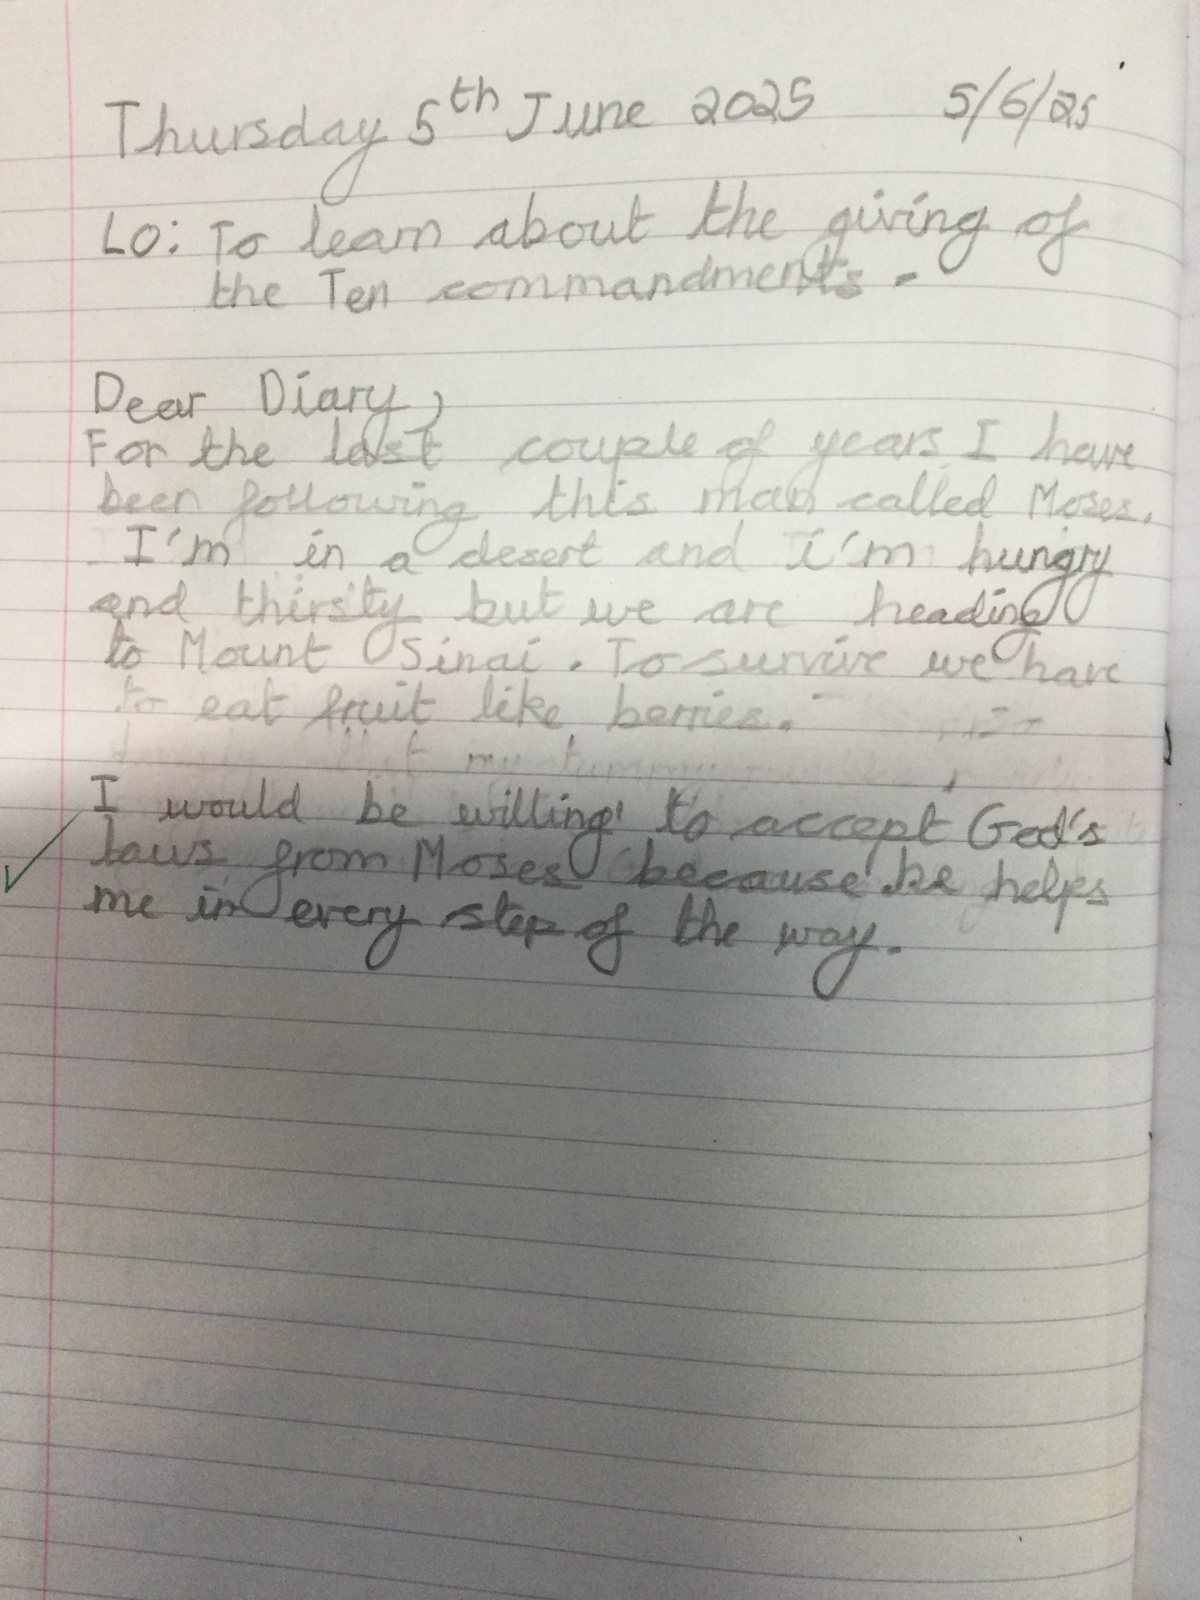 Thursday 5th June 2025 5/6/25
Lo: To learn about the giving of
the Ten commandments.
Dear Diary,
For the last couple of years I have
been following this man called Moses.
I'm in a desert and I'm hungry
and thirsty but we are heading
to Mount Sinai. To survive we have
to eat fruit like berries.
that my tummy
I would be willing to accept God's
laws from Moses because he helps
me in every step of the way.